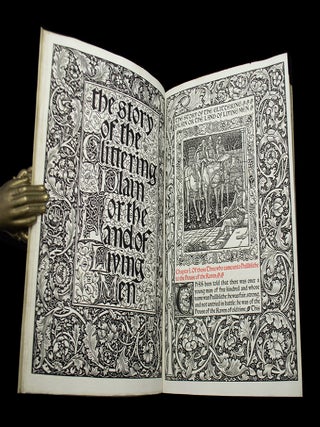 the story
of the
Glittering
Plain
or the
Land of
Living
Men
THE STORY OF THE GLITTERING
PLAIN OR THE LAND OF LIVING MEN
Chapter I. Of those Three who came unto Cleveland
to the House of the Raven
IT HAS been told that there was once a
young man of free kindred and whose
name was Hallblithe: he was fair, strong,
and not untried in battle; he was of the
House of the Raven of old time. This